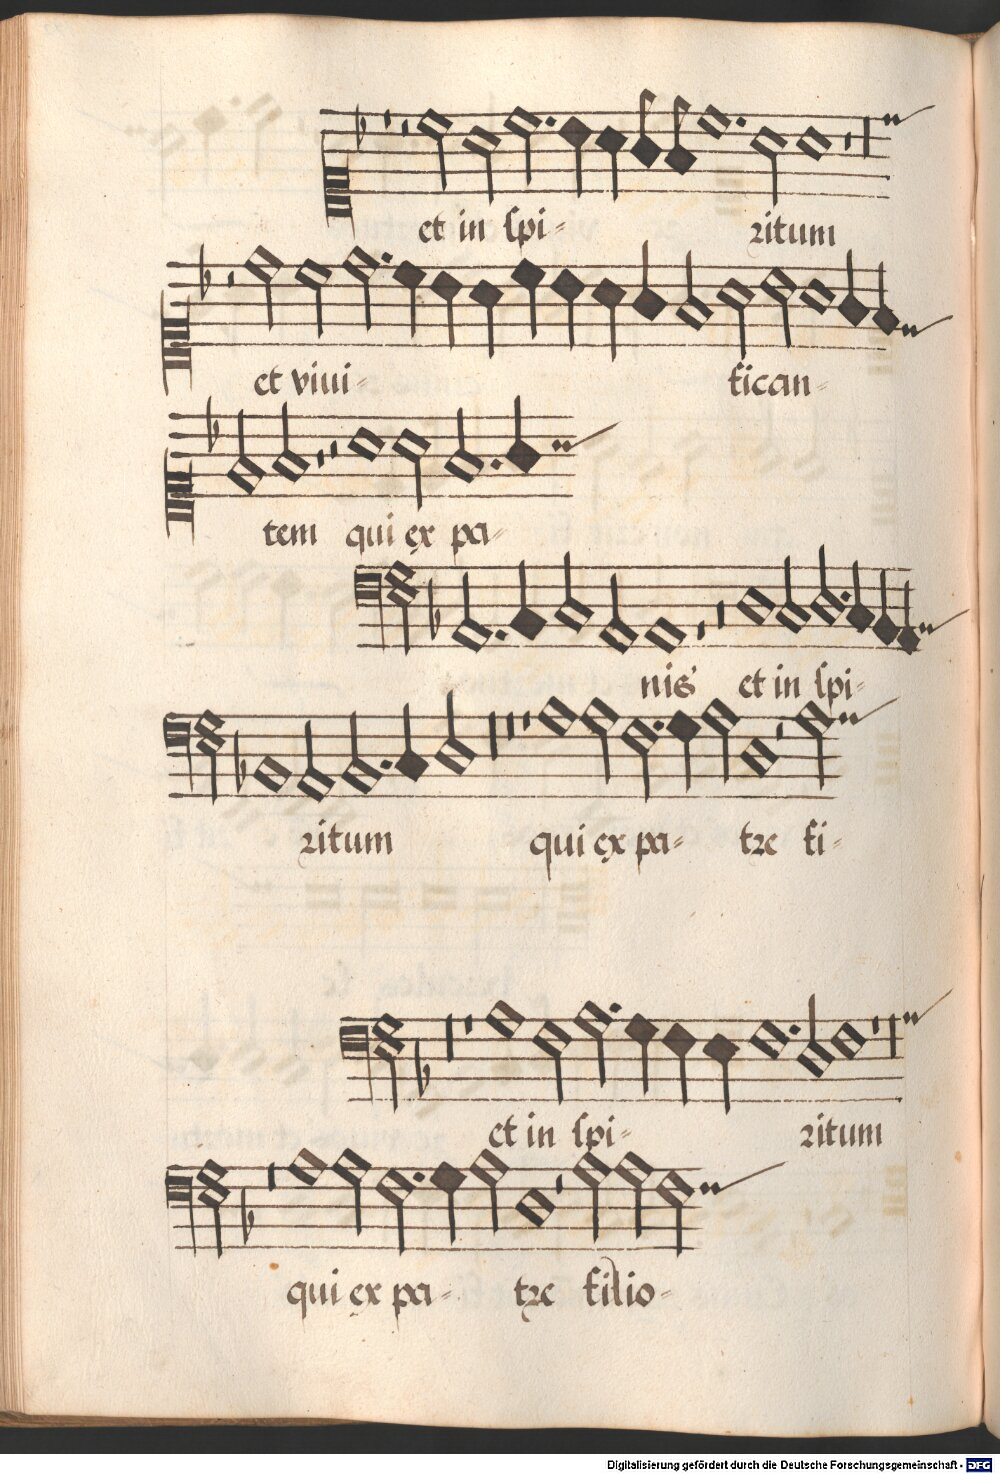 et in spi-
ritum
et viui-
fican-
tem qui ex pa-
nis et in spi-
ritum qui ex pa- tre fi-
et in spi- ritum
qui ex pa- tre filio-
Digitalisierung gefördert durch die Deutsche Forschungsgemeinschaft - DFG